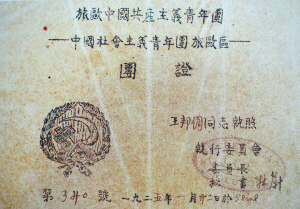 旅歐中國共產主義青年團
中國社會主義青年團旅歐區
團證
王邦倜同志執照
執行委員會
委員長
秘書
第340號 一九二五年一月廿二日於